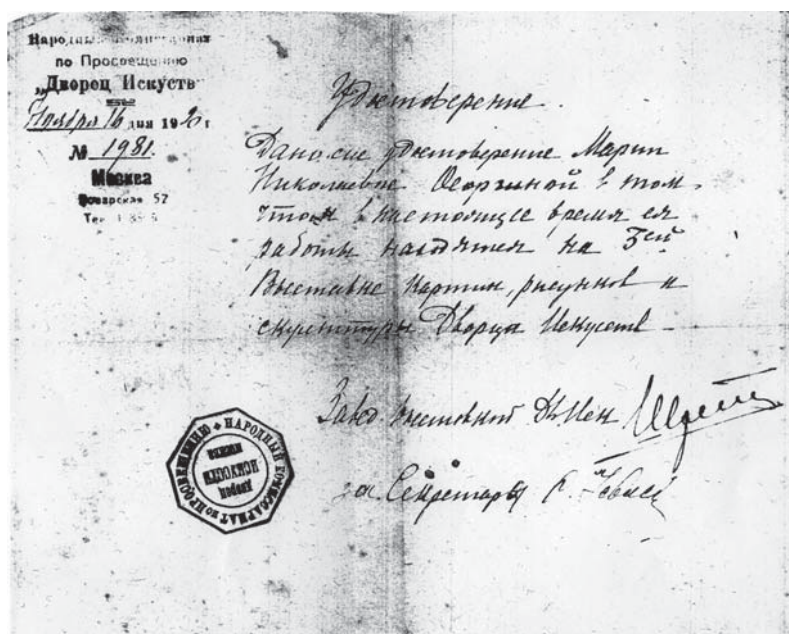 Народный Комиссариат
по Просвещению
„Дворец Искуств"
Ноября 16 дня 1920 г
№ 1981.
Москва
Поварская 52
Тел
Удостоверение.
Дано сие удостоверение Марии
Николаевне Осоргиной в том,
что в настоящее время ея
работы находятся на 3ей
Выставке Картин, рисунков и
скульптуры Дворца Искусств
Завед. выставкой Дв. Иск
за Секретаря
НАРОДНЫЙ КОМИССАРИАТ по ПРОСВЕЩЕНИЮ
Дворец
Искусств